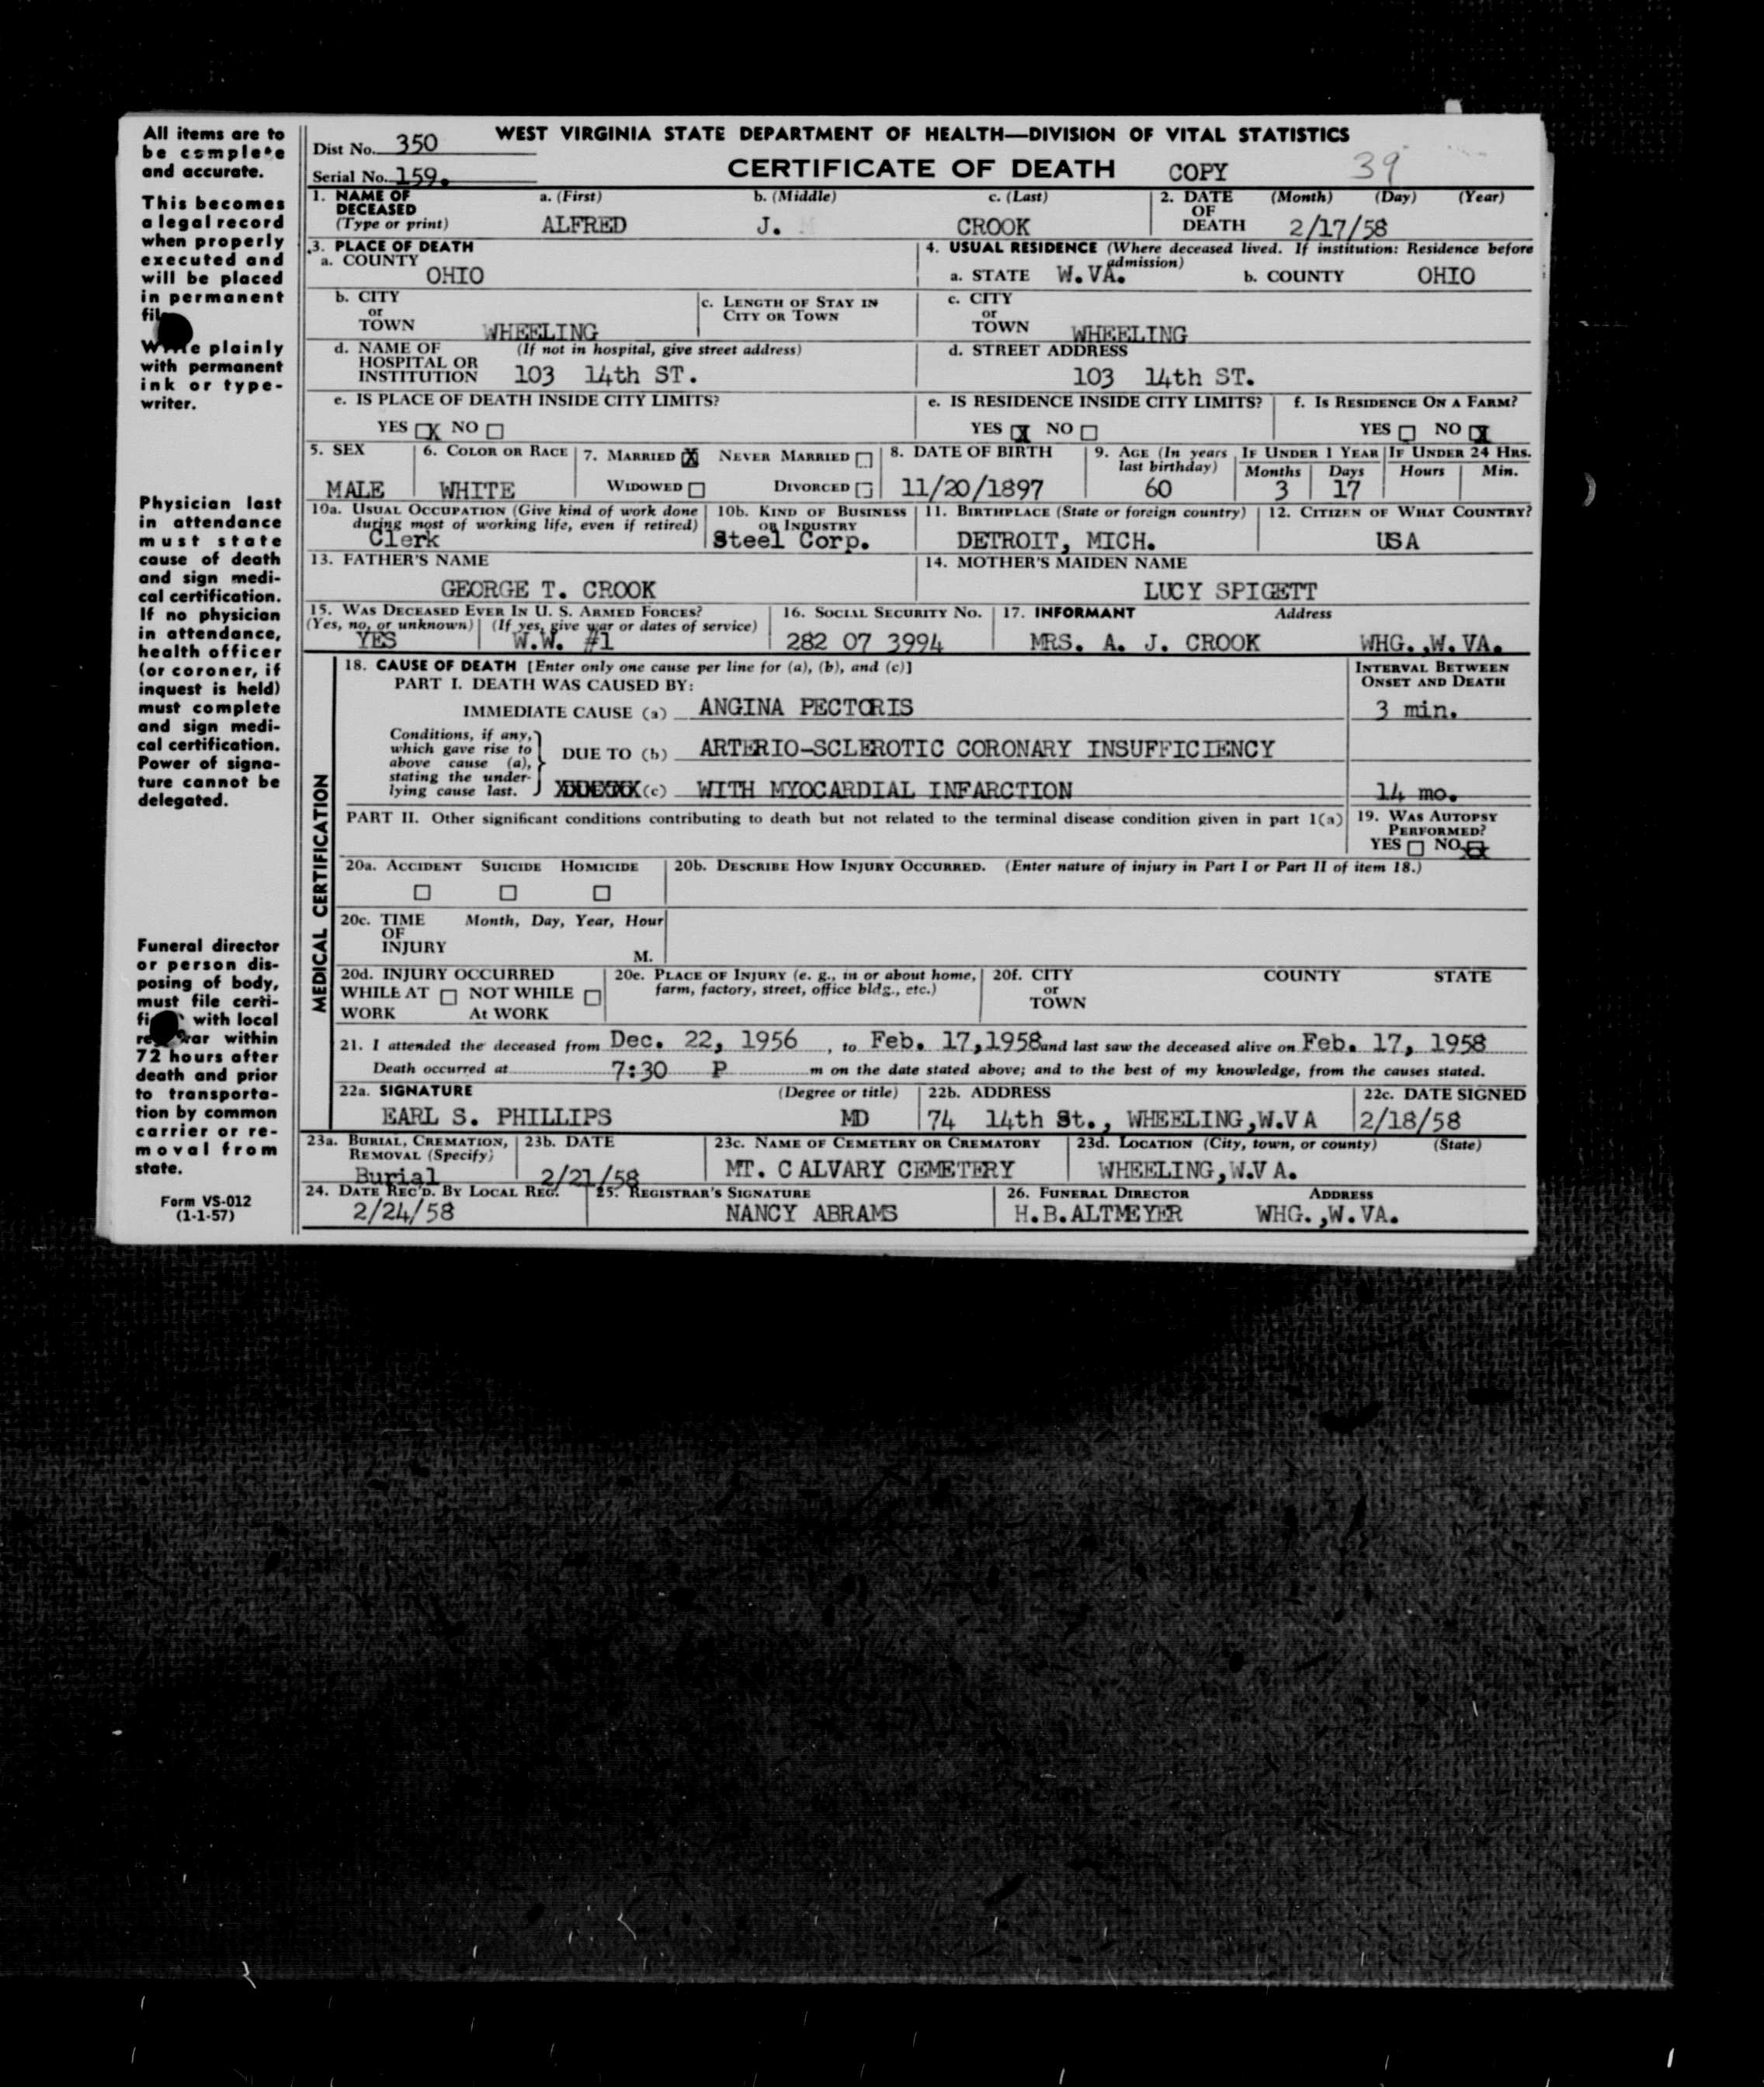 All items are to
be complete
and accurate.
This becomes
a legal record
when properly
executed and
will be placed
in permanent
Write plainly
with permanent
ink or type-
writer.
Physician last
in attendance
must state
cause of death
and sign medi-
cal certification.
If no physician
in attendance,
health officer
(or coroner, if
inquest is held)
must complete
and sign medi-
cal certification.
Power of signa-
ture cannot be
delegated.
Funeral director
or person dis-
posing of body,
must file certi-
with local
within
72 hours after
death and prior
to transporta-
tion by common
carrier or re-
moval from
state.
Form VS-012
(1-1-57)
WEST VIRGINIA STATE DEPARTMENT OF HEALTH—DIVISION OF VITAL STATISTICS
Dist No. 350
CERTIFICATE OF DEATH COPY 39
Serial No. 159.
1. NAME OF DECEASED (Type or print) a. (First) b. (Middle) c. (Last) 2. DATE OF DEATH (Month) (Day) (Year)
ALFRED J. CROOK 2/17/58
3. PLACE OF DEATH
a. COUNTY OHIO
4. USUAL RESIDENCE (Where deceased lived. If institution: Residence before admission)
a. STATE W.VA. b. COUNTY OHIO
b. CITY or TOWN WHEELING
c. LENGTH OF STAY IN CITY OR TOWN
c. CITY or TOWN WHEELING
d. NAME OF HOSPITAL OR INSTITUTION (If not in hospital, give street address)
103 14th ST.
d. STREET ADDRESS
103 14th ST.
e. IS PLACE OF DEATH INSIDE CITY LIMITS?
YES X NO
e. IS RESIDENCE INSIDE CITY LIMITS?
YES X NO
f. IS RESIDENCE ON A FARM?
YES NO X
5. SEX
MALE
6. COLOR OR RACE
WHITE
7. MARRIED X NEVER MARRIED
WIDOWED DIVORCED
8. DATE OF BIRTH
11/20/1897
9. AGE (In years last birthday)
60
IF UNDER 1 YEAR
Months Days
3 17
IF UNDER 24 HRS.
Hours Min.
10a. USUAL OCCUPATION (Give kind of work done
during most of working life, even if retired)
Clerk
10b. KIND OF BUSINESS OR INDUSTRY
Steel Corp.
11. BIRTHPLACE (State or foreign country)
DETROIT, MICH.
12. CITIZEN OF WHAT COUNTRY?
USA
13. FATHER'S NAME
GEORGE T. CROOK
14. MOTHER'S MAIDEN NAME
LUCY SPIGETT
15. WAS DECEASED EVER IN U. S. ARMED FORCES?
(Yes, no, or unknown) (If yes, give war or dates of service)
YES W.W. #1
16. SOCIAL SECURITY NO.
282 07 3994
17. INFORMANT Address
MRS. A. J. CROOK WHG.,W.VA.
MEDICAL CERTIFICATION
18. CAUSE OF DEATH [Enter only one cause per line for (a), (b), and (c)]
INTERVAL BETWEEN ONSET AND DEATH
PART I. DEATH WAS CAUSED BY:
IMMEDIATE CAUSE (a) ANGINA PECTORIS 3 min.
Conditions, if any,
which gave rise to
above cause (a),
stating the under-
lying cause last.
DUE TO (b) ARTERIO-SCLEROTIC CORONARY INSUFFICIENCY
(c) WITH MYOCARDIAL INFARCTION 14 mo.
PART II. Other significant conditions contributing to death but not related to the terminal disease condition given in part 1(a)
19. WAS AUTOPSY PERFORMED?
YES NO X
20a. ACCIDENT SUICIDE HOMICIDE
20b. DESCRIBE HOW INJURY OCCURRED. (Enter nature of injury in Part I or Part II of item 18.)
20c. TIME OF INJURY Month, Day, Year, Hour
M.
20d. INJURY OCCURRED
WHILE AT WORK NOT WHILE At WORK
20e. PLACE OF INJURY (e. g., in or about home,
farm, factory, street, office bldg., etc.)
20f. CITY or TOWN COUNTY STATE
21. I attended the deceased from Dec. 22, 1956, to Feb. 17,1958 and last saw the deceased alive on Feb. 17, 1958
Death occurred at 7:30 P m on the date stated above; and to the best of my knowledge, from the causes stated.
22a. SIGNATURE (Degree or title)
EARL S. PHILLIPS MD
22b. ADDRESS
74 14th St., WHEELING,W.VA
22c. DATE SIGNED
2/18/58
23a. BURIAL, CREMATION, REMOVAL (Specify)
Burial
23b. DATE
2/21/58
23c. NAME OF CEMETERY OR CREMATORY
MT. CALVARY CEMETERY
23d. LOCATION (City, town, or county) (State)
WHEELING,W.VA.
24. DATE REC'D. BY LOCAL REG.
2/24/58
25. REGISTRAR'S SIGNATURE
NANCY ABRAMS
26. FUNERAL DIRECTOR ADDRESS
H.B.ALTMEYER WHG.,W.VA.